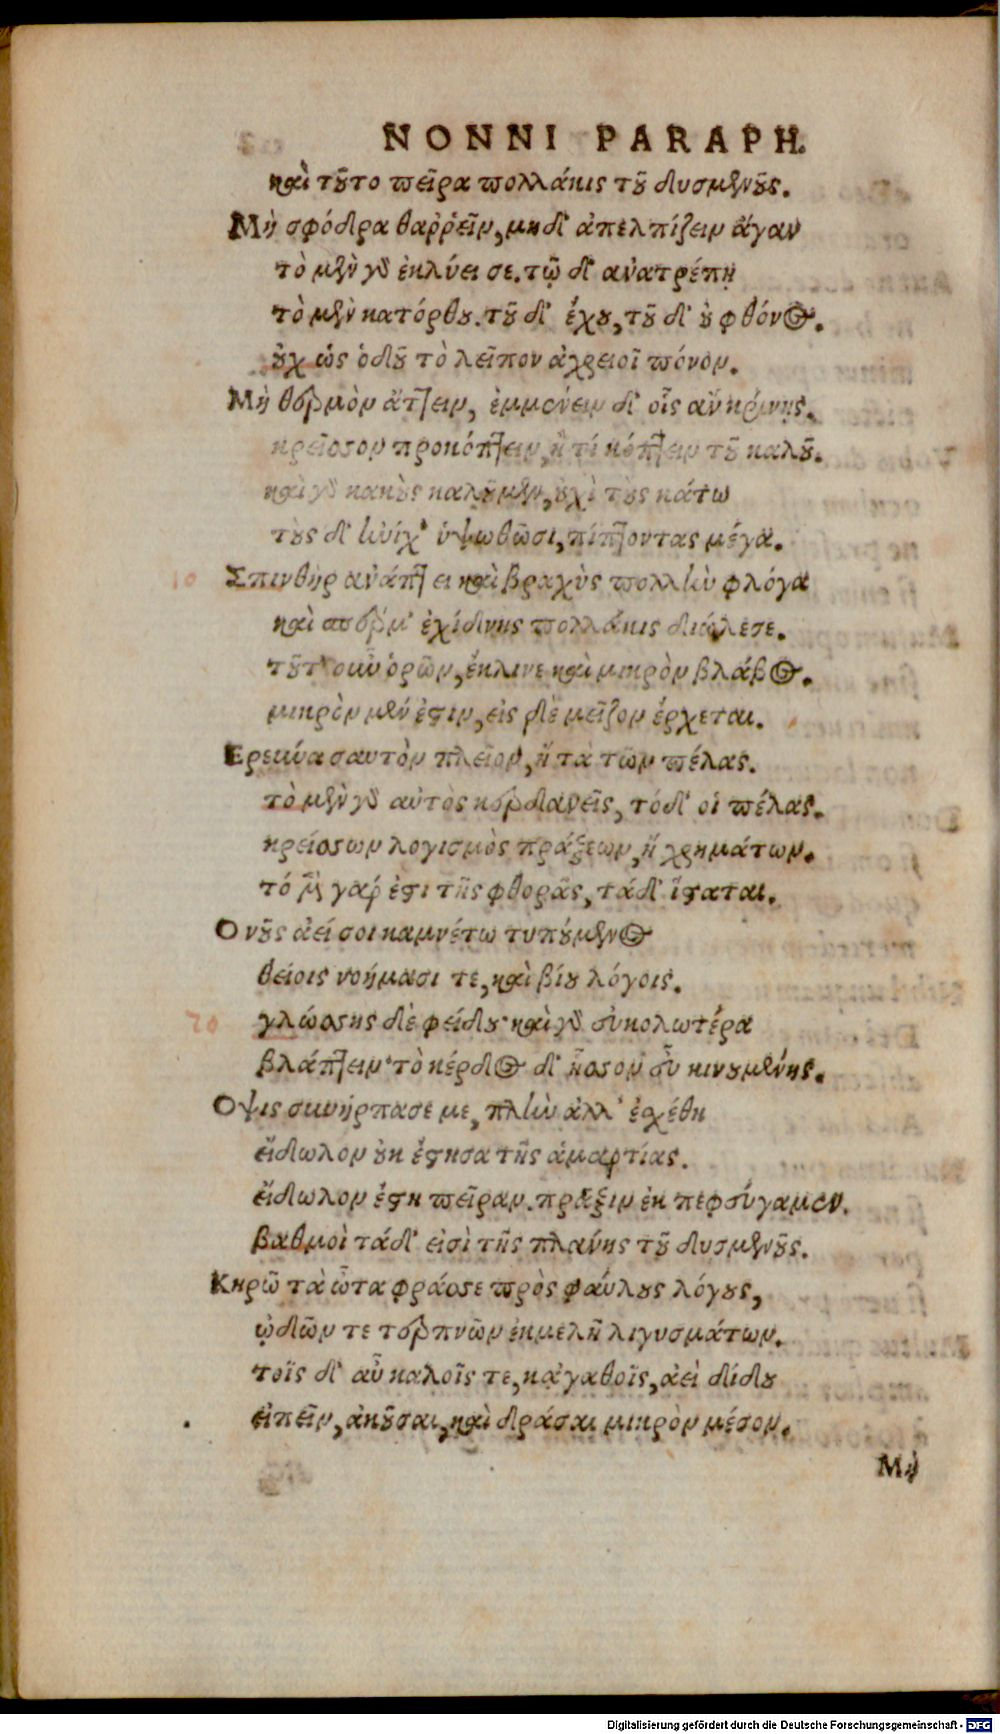 NONNI PARAPH.
καὶ τοῦτο πεῖρα πολλάκις τοῦ δυσμενοῦς.
Μὴ σφόδρα θαῤῥεῖν, μηδ' ἀπελπίζειν ἄγαν
τὸ μὲν γὰρ ἐκλύει σε. τῷ δ' ἀνατρέπῃ
τὸ μὲν κατόρθου. τοῦ δ' ἔχου, τοῦ δ' οὐ φθόνος.
οὐχ ὡς ὁδοῦ τὸ λεῖπον ἀχρειοῖ πόνον.
Μὴ θερμὸν ἄττειν, ἐμμένειν δ' οἷς ἂν κρίνῃς.
κρεῖσσον προκόπτειν, ἤ τί κόπτειν τοῦ καλοῦ.
καὶ γὰρ κακοὺς καλοῦμεν, οὐχὶ τοὺς κάτω
τοὺς δ' ἡνίχ' ὑψωθῶσι, πίπτοντας μέγα.
10 Σπινθὴρ ἀνάπτει καὶ βραχὺς πολλὴν φλόγα
καὶ σπέρμ' ἐχίδνης πολλάκις διώλεσε.
τοῦτ' οὖν ὁρῶν, ἔκλινε καὶ μικρὸν βλάβος.
μικρὸν μέν ἐστιν, εἰς δὲ μεῖζον ἔρχεται.
Ερεύνα σαυτὸν πλεῖον, ἢ τὰ τῶν πέλας.
τὸ μὲν γὰρ αὐτὸς κερδανεῖς, τόδ' οἱ πέλας.
κρείσσων λογισμὸς πράξεων, ἢ χρημάτων.
τό μὲν γάρ ἐστι τῆς φθορᾶς, τάδ' ἵσταται.
Ο νοῦς ἀεί σοι καμνέτω τυπούμενος
θείοις νοήμασί τε, καὶ βίου λόγοις.
20 γλώσσης δὲ φείδου· καὶ γὰρ εὐκολωτέρα
βλάπτειν· τὸ κέρδος δ' ἧσσον εὖ κινουμένης.
Οψις συνήρπασέ με, πλὴν ἀλλ' ἐσχέθη
εἴδωλον οὐκ ἔστησα τῆς ἁμαρτίας.
εἴδωλον ἔστη πεῖραν. πρᾶξιν ἐκ πεφεύγαμεν.
βαθμοὶ τάδ' εἰσὶ τῆς πλάνης τοῦ δυσμενοῦς.
Κηρῶ τὰ ὦτα φράσσε πρὸς φαύλους λόγους,
ᾠδῶν τε τερπνῶν ἐκμελῆ λιγυσμάτων.
τοῖς δ' αὖ καλοῖς τε, κἀγαθοῖς, ἀεὶ δίδου
εἰπεῖν, ἀκοῦσαι, καὶ δράσαι μικρὸν μέσον.
Μὴ
Digitalisierung gefördert durch die Deutsche Forschungsgemeinschaft - DFG